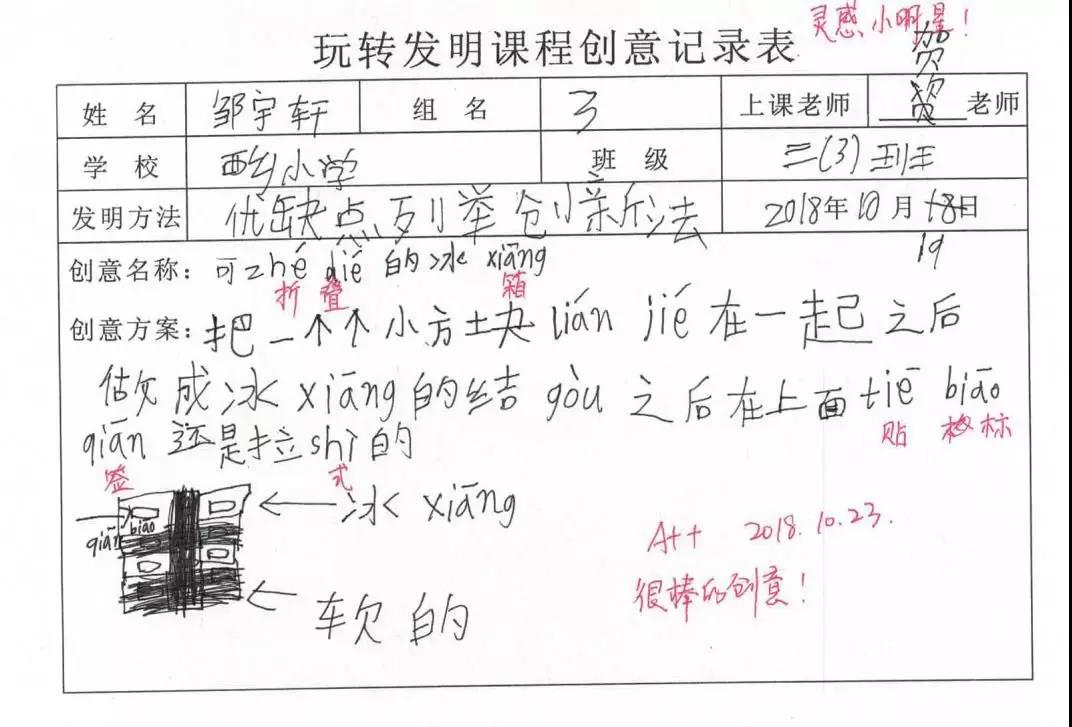 灵感小明星！
玩转发明课程创意记录表
姓 名 邹宇轩 组 名 3 上课老师 老师
学 校 西乡小学 班 级 三(3)班
发明方法 优缺点列举创新法 2018年10月18日
19
创意名称：可zhé dié的冰xiāng
折 叠 箱
创意方案：把一个个小方块lián jié在一起之后
做成冰xiāng的结gòu之后在上面tiē biāo
贴 标
qiān还是拉shì的
签 式
冰xiāng
biāo
qiān
A++ 2018.10.23.
很棒的创意！
软的